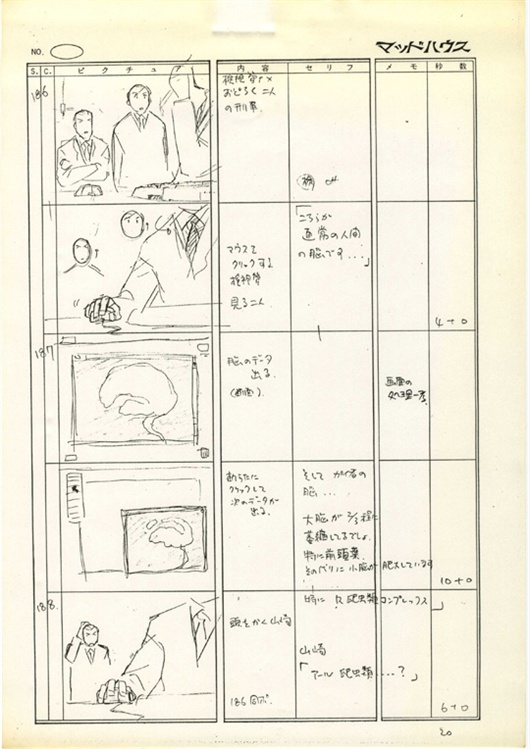 NO.
マッドハウス
S. C. ピクチュア 内容 セリフ メモ 秒数
186
おどろく二人
の刑事
「こちらが
通常の人間
の脳です...」
マウスを
クリックする
見る二人
4+0
187
脳のデータ
出る。
(断面)
画面の
新たに
クリックして
次のデータが
出る。
そして
脳...
大脳が 2/3程に
萎縮してるでしょ
特に前頭葉
そのかわりに小脳が肥大しています
10+0
188
特に R爬虫類コンプレックス」
頭をかく山崎
山崎
「アール爬虫類....?」
186 同ポ
6+0
20